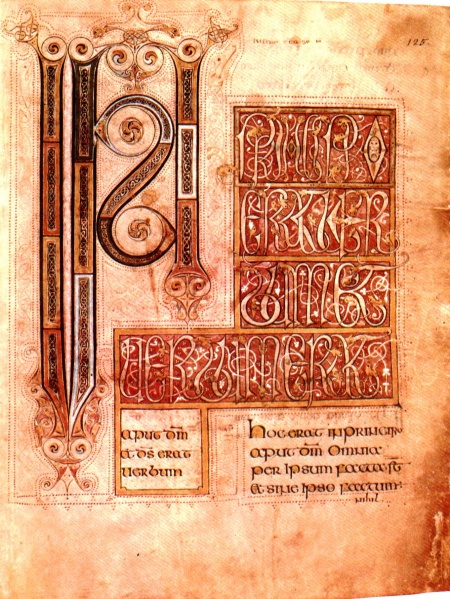 125
IN
PRINCIPIO
ERATUER
BUMET
UERBUMERAT
apud dm̄
et ds̄ erat
uerbum
Hoc erat in principio
apud dm̄ omnia
per ipsum facta st̄
et sine ipso factum
nihil